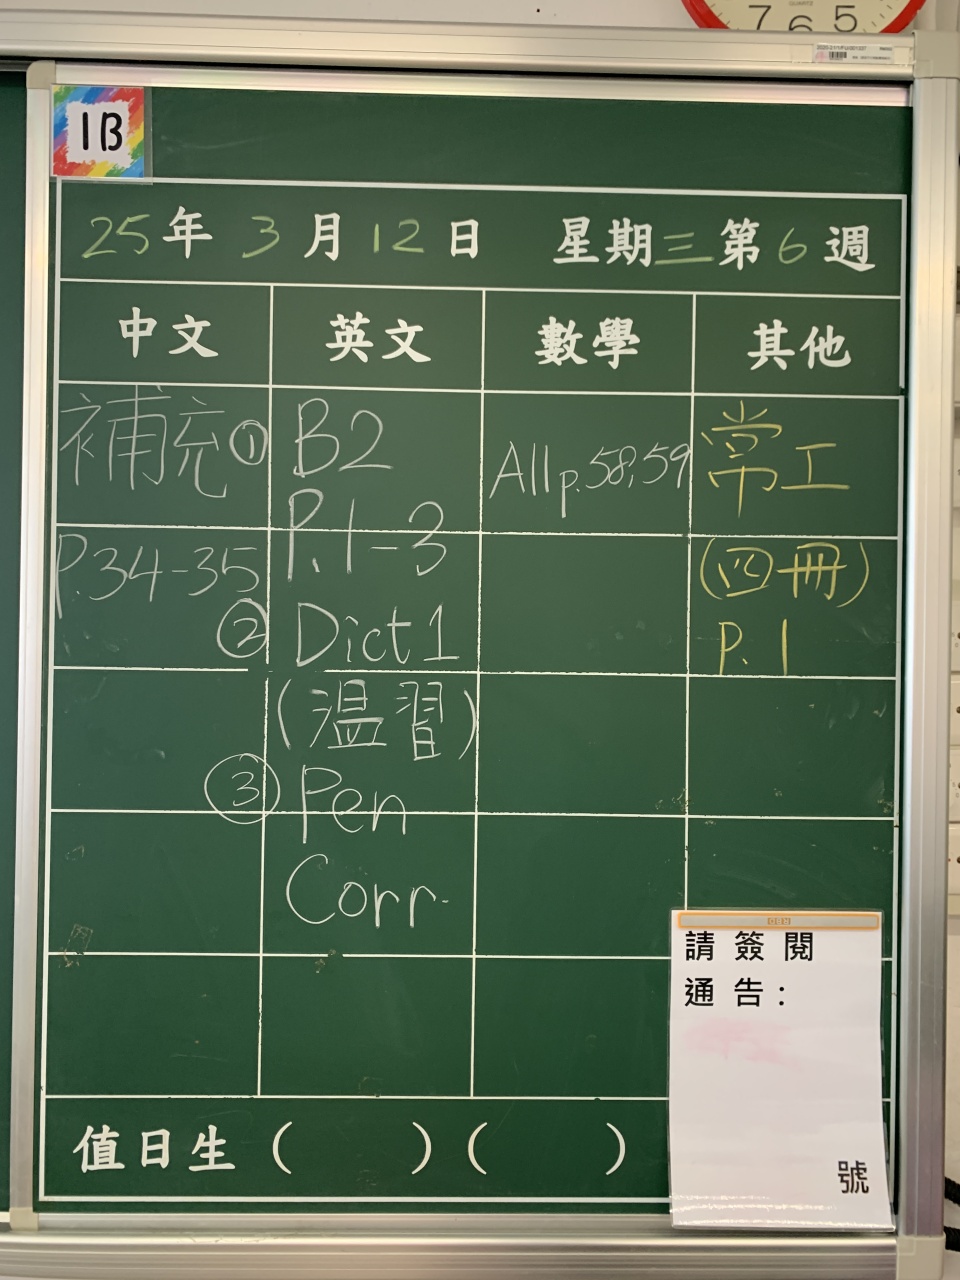 7 6 5
QUARTZ
1B
25年 3月 12日 星期三第6週
中文 英文 數學 其他
補充
P.34-35
① B2
P.1-3
② Dict 1
(温習)
③ Pen
Corr.
All p.58,59
常工
(四冊)
P.1
請簽閱
通告:
號
值日生 ( ) ( )